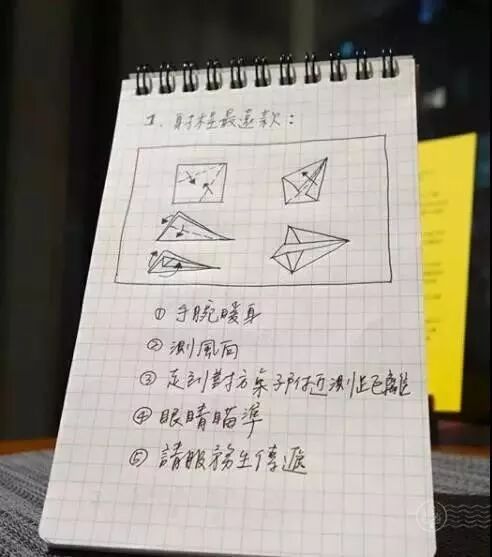 1. 射程最遠款:
① 手腕暖身
② 測風向
③ 走到對方桌子附近測距離
④ 眼睛瞄準
⑤ 請服務生傳遞